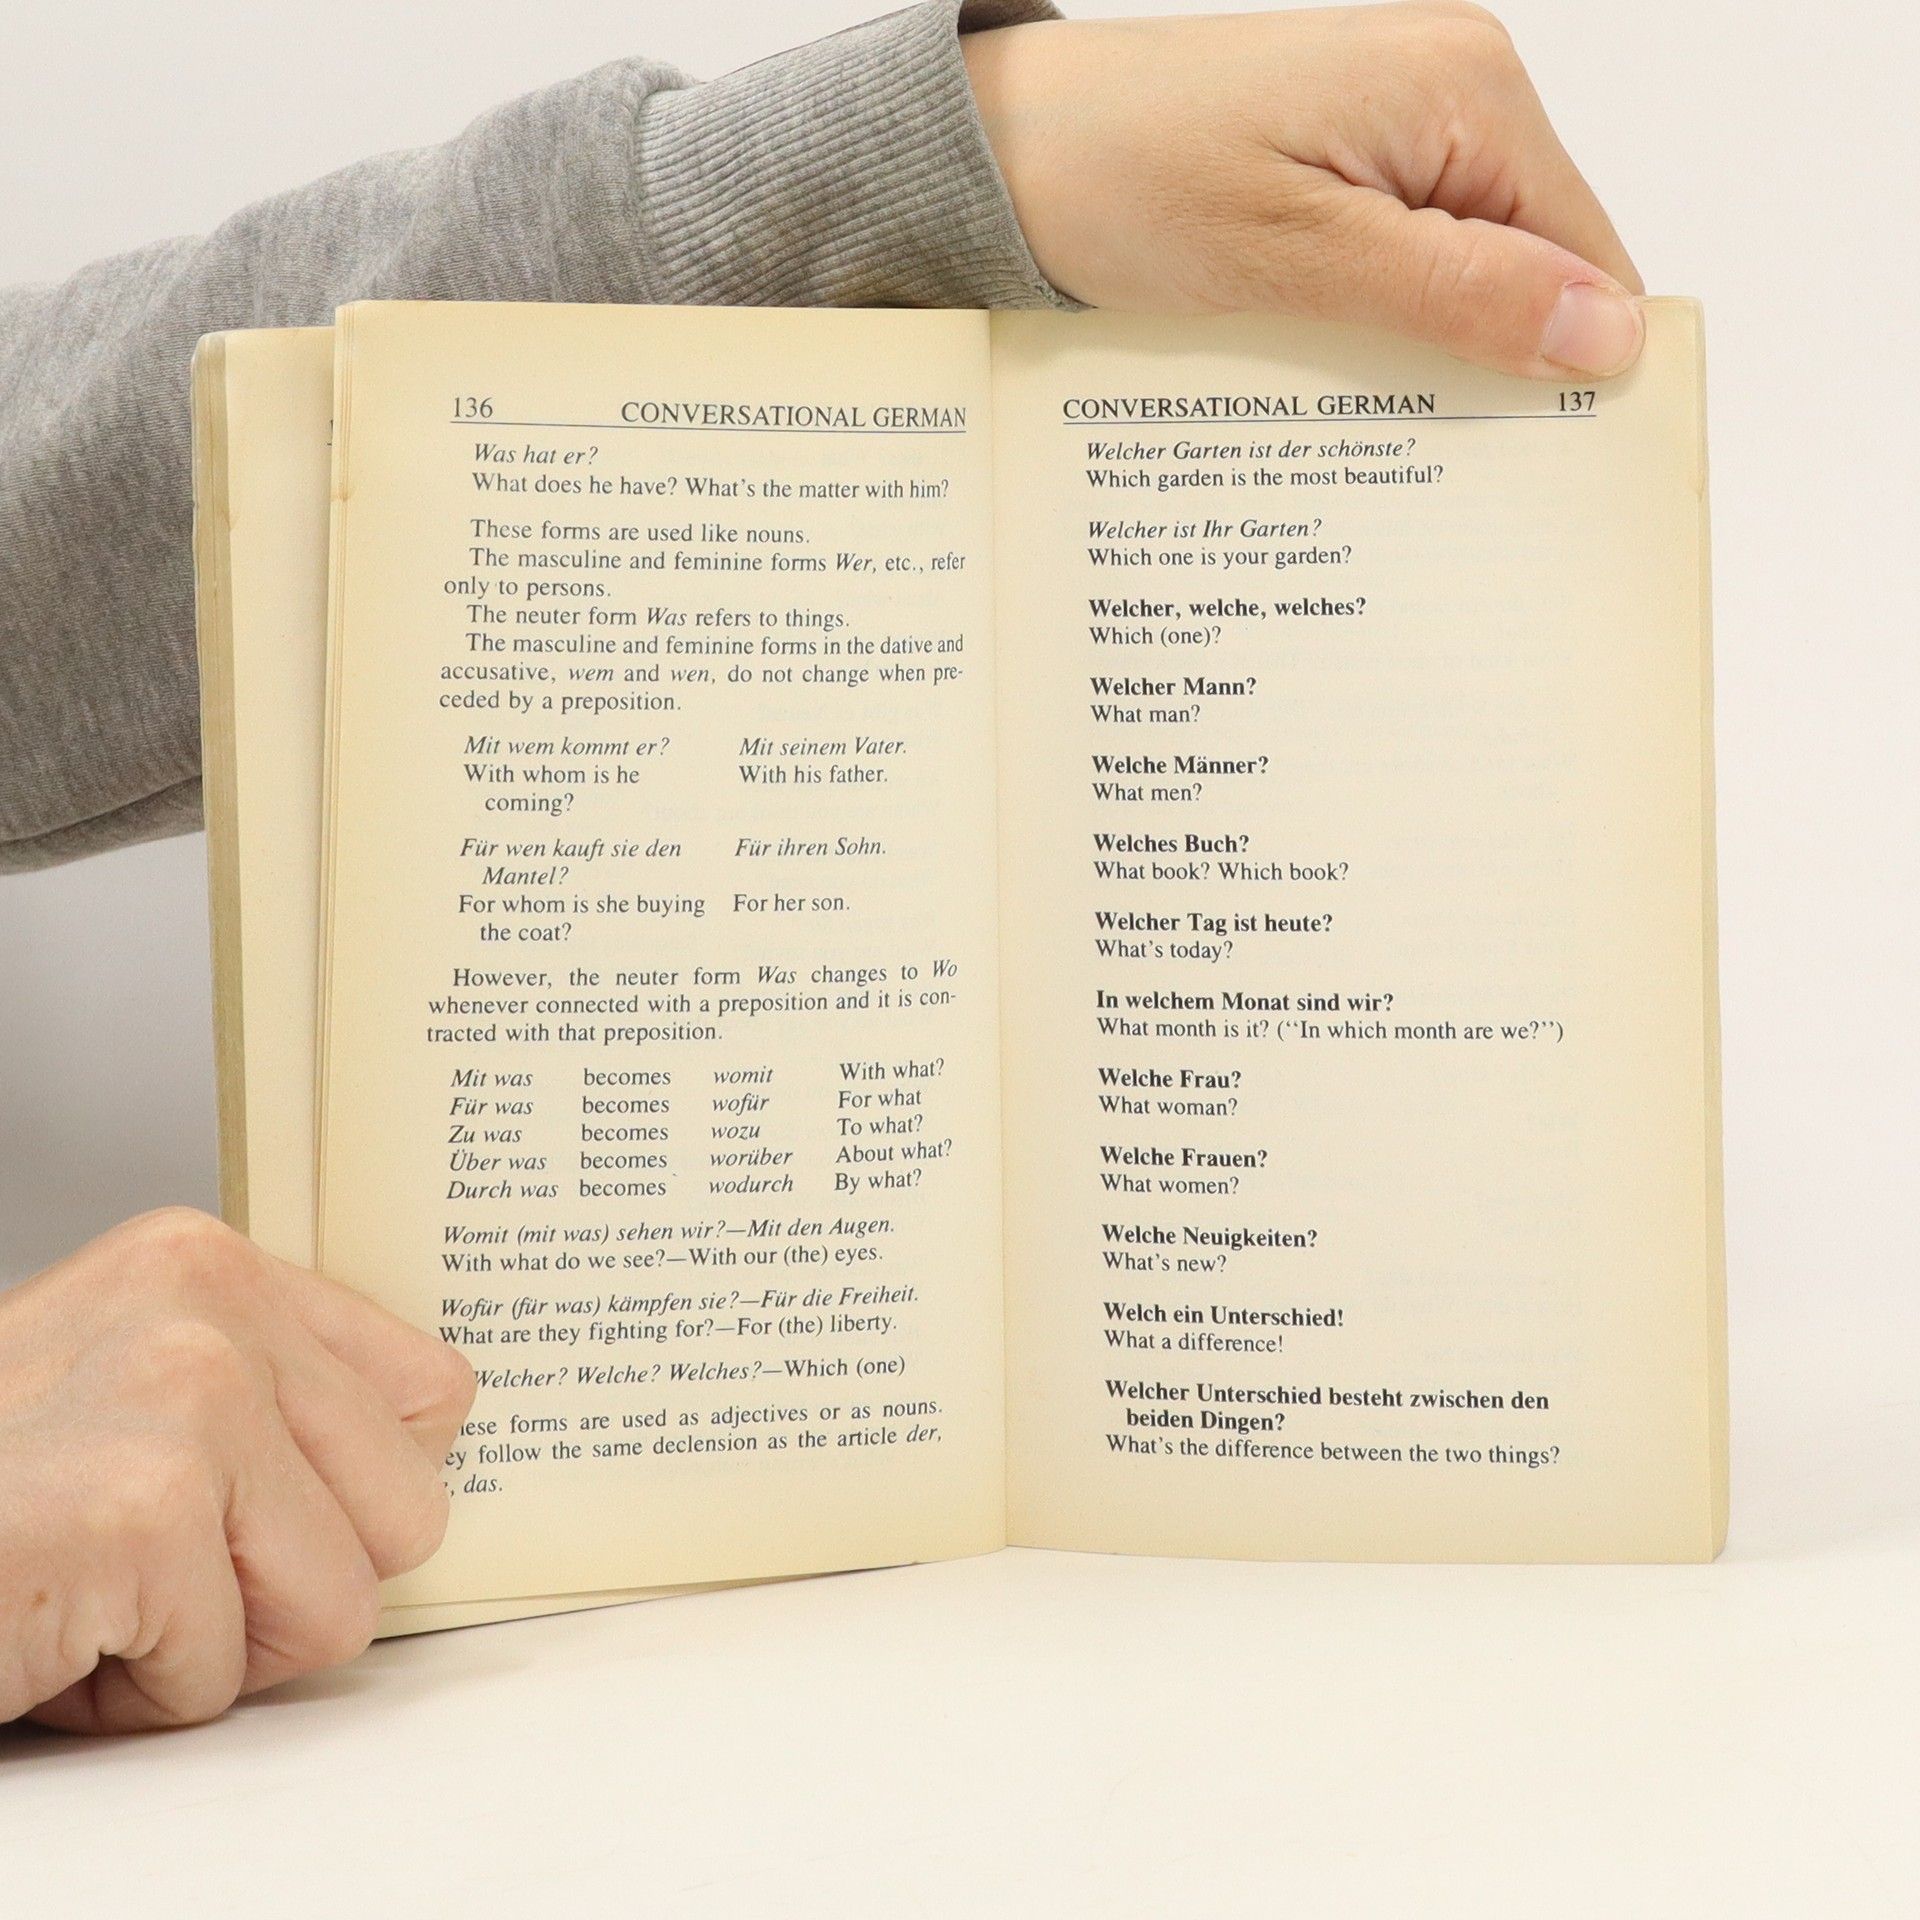 136 CONVERSATIONAL GERMAN
Was hat er?
What does he have? What's the matter with him?
These forms are used like nouns.
The masculine and feminine forms Wer, etc., refer
only to persons.
The neuter form Was refers to things.
The masculine and feminine forms in the dative and
accusative, wem and wen, do not change when pre-
ceded by a preposition.
Mit wem kommt er? Mit seinem Vater.
With whom is he With his father.
coming?
Für wen kauft sie den Für ihren Sohn.
Mantel?
For whom is she buying For her son.
the coat?
However, the neuter form Was changes to Wo
whenever connected with a preposition and it is con-
tracted with that preposition.
Mit was becomes womit With what?
Für was becomes wofür For what
Zu was becomes wozu To what?
Über was becomes worüber About what?
Durch was becomes wodurch By what?
Womit (mit was) sehen wir?—Mit den Augen.
With what do we see?—With our (the) eyes.
Wofür (für was) kämpfen sie?—Für die Freiheit.
What are they fighting for?—For (the) liberty.
Welcher? Welche? Welches?—Which (one)
forms are used as adjectives or as nouns.
follow the same declension as the article der,
das.
CONVERSATIONAL GERMAN 137
Welcher Garten ist der schönste?
Which garden is the most beautiful?
Welcher ist Ihr Garten?
Which one is your garden?
Welcher, welche, welches?
Which (one)?
Welcher Mann?
What man?
Welche Männer?
What men?
Welches Buch?
What book? Which book?
Welcher Tag ist heute?
What's today?
In welchem Monat sind wir?
What month is it? (“In which month are we?”)
Welche Frau?
What woman?
Welche Frauen?
What women?
Welche Neuigkeiten?
What's new?
Welch ein Unterschied!
What a difference!
Welcher Unterschied besteht zwischen den
beiden Dingen?
What's the difference between the two things?